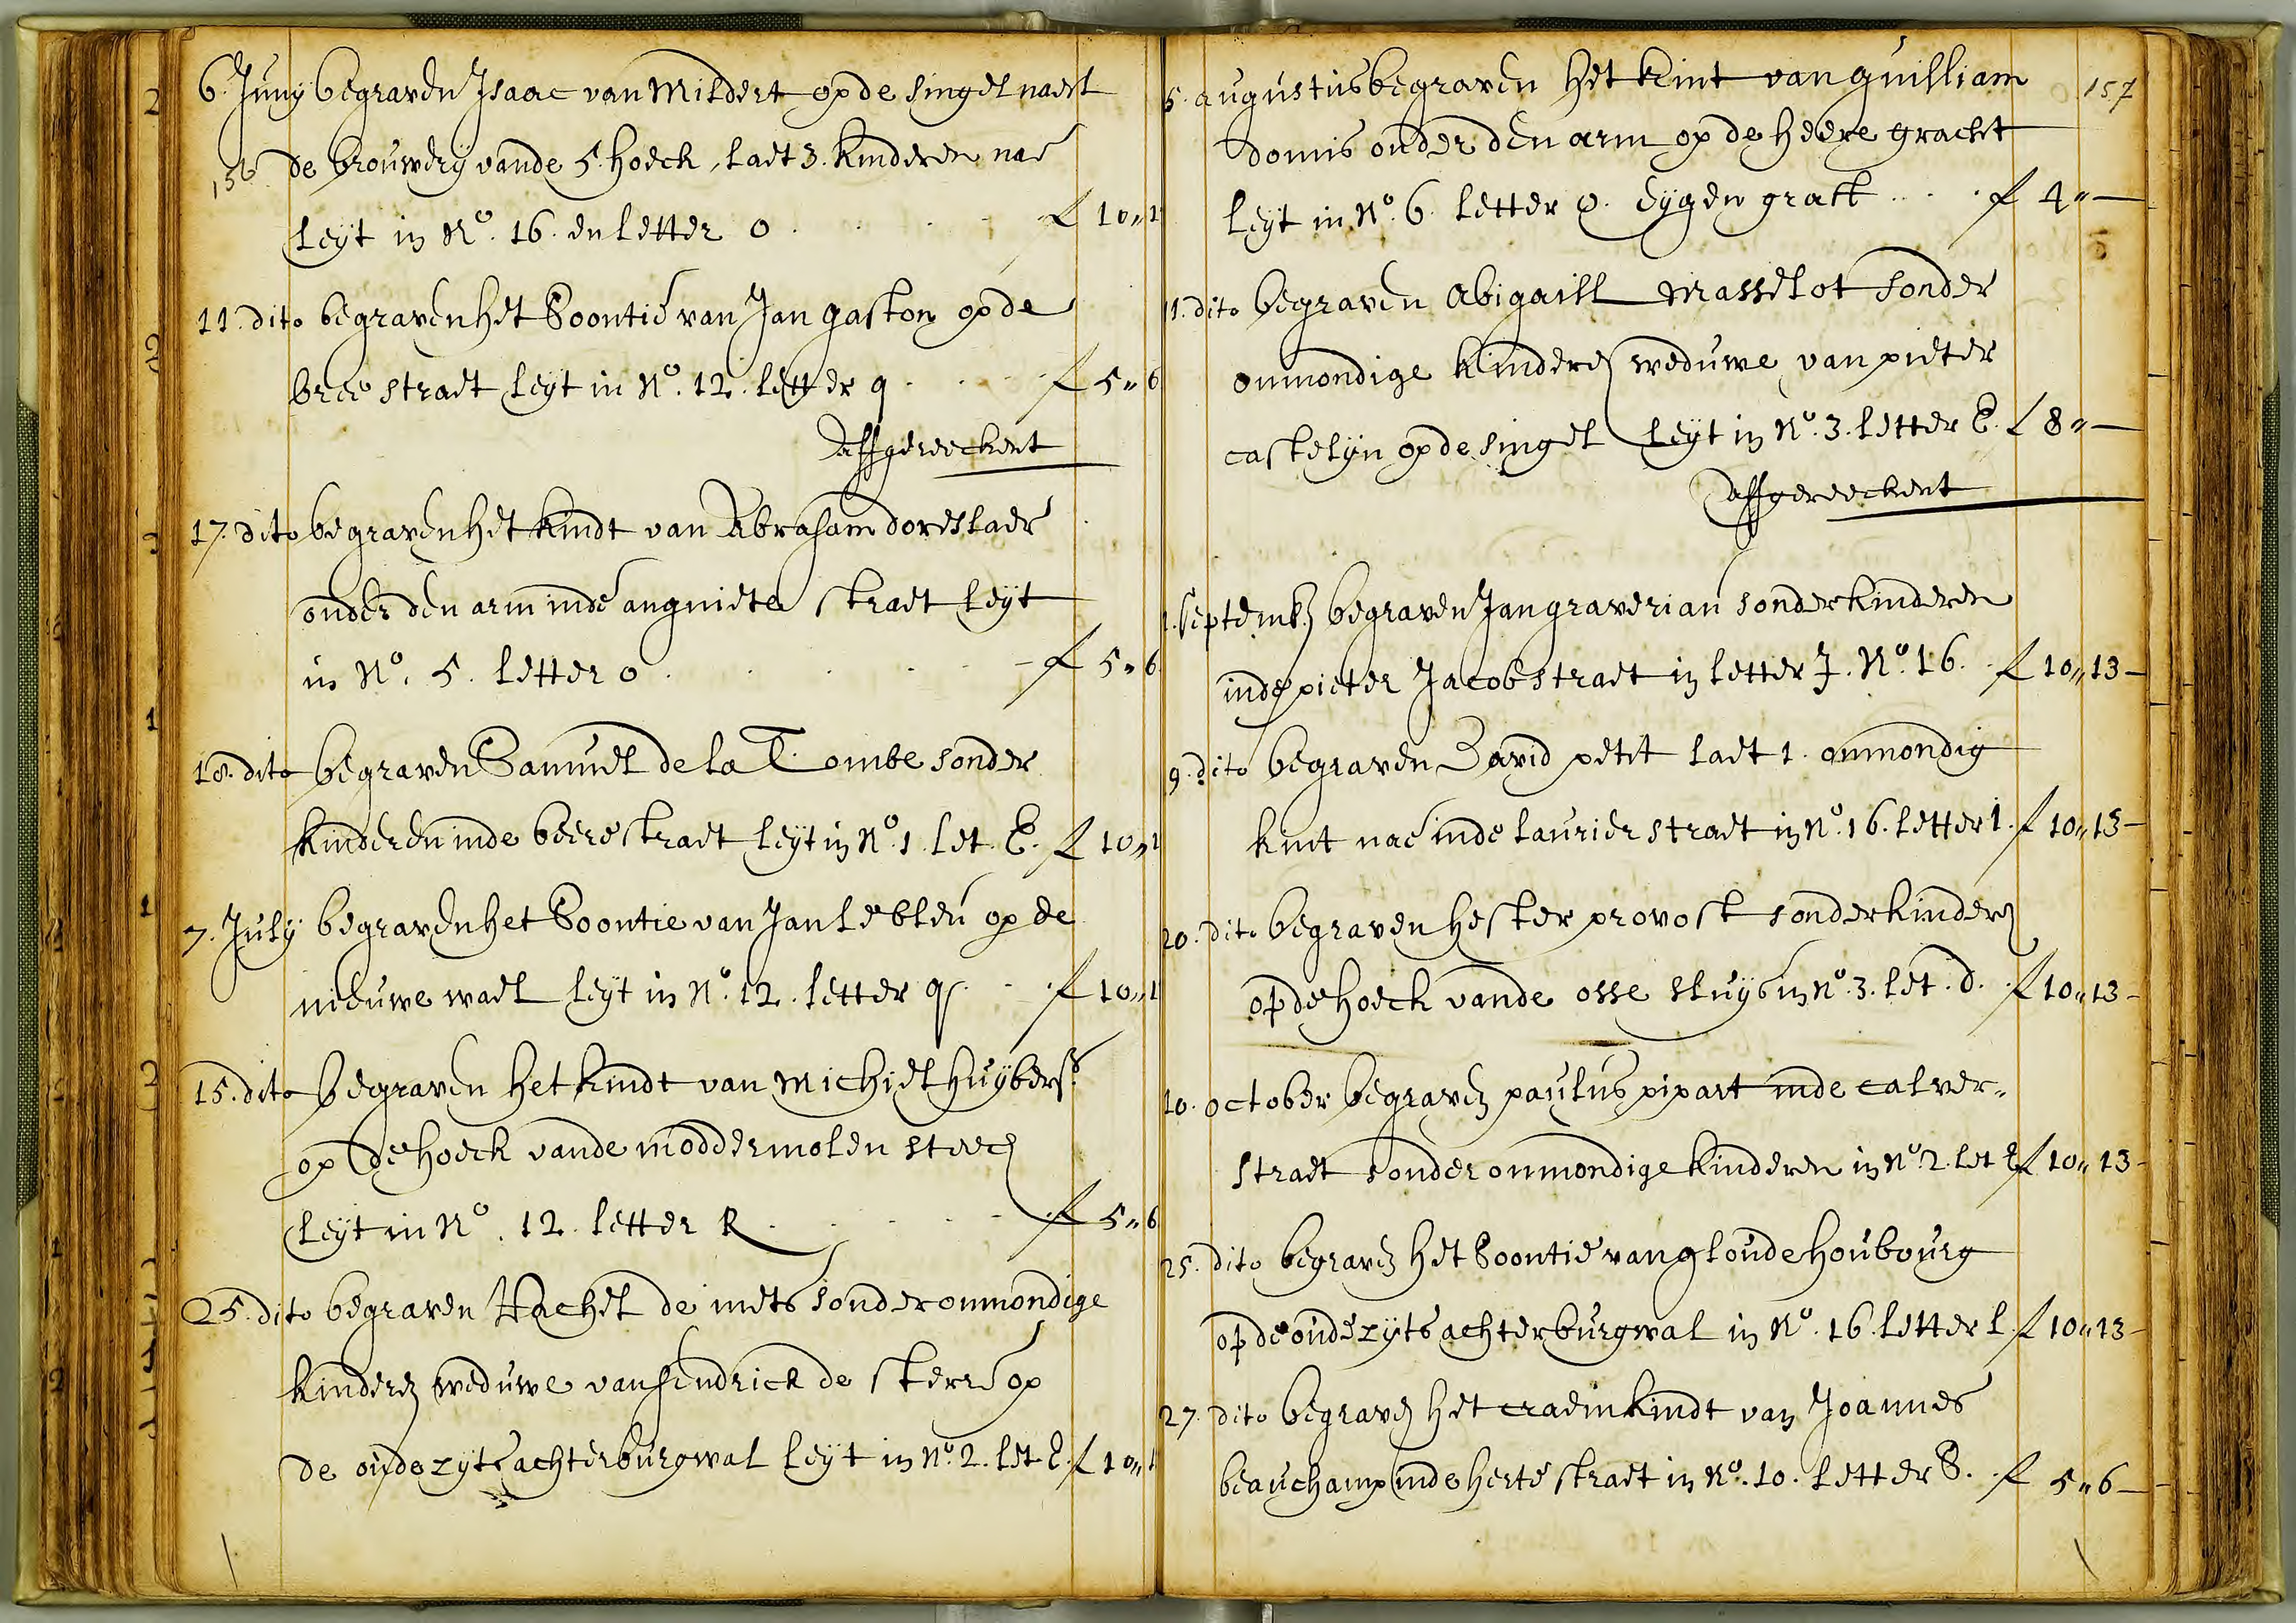 6. Juny begraven Isaac van Mildert op de singel naest
156 de brouwerij vande 5. hoeck, laet 3. kinderen nae
leyt in No. 16. en letter o . . . . f 10"1
11. dito begraven het Soontie van Jan gaston op de
bree straet leyt in No. 12. letter q . . . . f 5"6
affgereeckent
17. dito begraven het kindt van Abraham doreslaer
onder den arm inde angniete straet leyt
in No. 5. letter o . . . . f 5"6
18. dito begraven Samuel de la Tombe sonder
kinderen inde beere straet leyt in No. 1 let. E. f 10"1
7. July begraven het Soontie van Jan le bleu op de
nieuwe wael leyt in No. 12. letter q . . . f 10"1
15. dito begraven het kindt van Michiel Huybers
op de hoeck vande moddermolen steech
leyt in No. 12. letter R . . . . f 5"6
25. dito begraven Rachel de mets sonder onmondige
kinderen weduwe van hendrick de sterre op
de oude zyts achterburgwal leyt in No. 2. let E. f 10"1
5. augustus begraven het kint van guilliam 157
domis onder den arm op de heere gracht
leyt in No. 6. letter o. eygen graft . . . f 4"—
11. dito begraven abigaill Masselot sonder
onmondige kinderen weduwe van pieter
castelyn op de singel leyt in No. 3. letter E. f 8"—
affgereeckent
1. Septemb. begraven Jan graverian sonder kinderen
inde pieter Jacobstraet in letter J. No. 16. f 10"13—
9. dito begraven David petit laet 1. onmondig
kint nae inde laurier straet in No. 16. letter 1. f 10"13—
20. dito begraven hester provost sonder kinderen
op de hoeck vande osse sluys in No. 3. let. d. f 10"13—
10. october begraven paulus pipart inde calver"
straet sonder onmondige kinderen in No. 2. let E f 10"13—
25. dito begraven het Soontie van gloude houbourg
op de oude zyts achterburgwal in No. 16. letter l. f 10"13—
27. dito begraven het craemkindt van Joannes
beauchamp inde herte straet in No. 10. letter S. f 5"6—